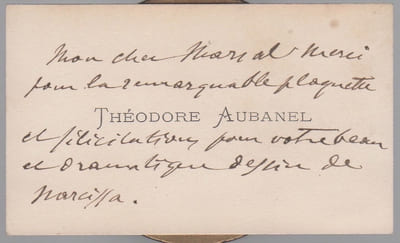 Mon cher Marsal Merci
pour la remarquable plaquette
THÉODORE AUBANEL
et félicitations pour votre beau
et dramatique dessin de
Narcissa.